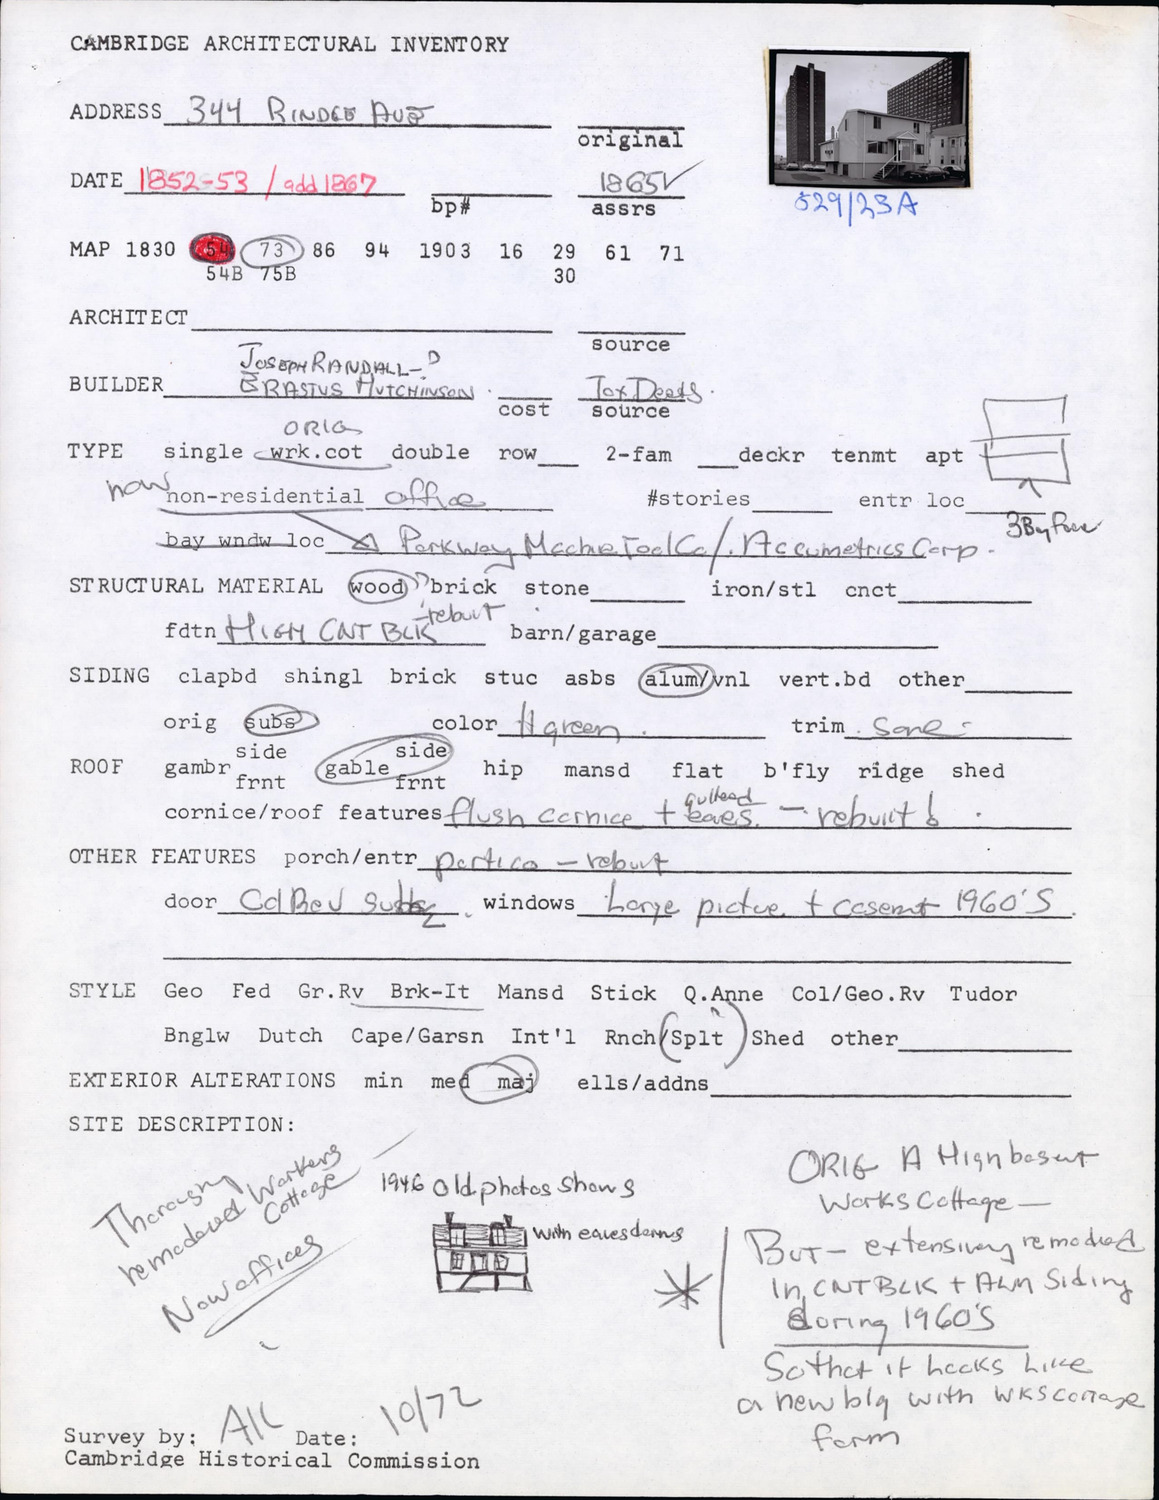 CAMBRIDGE ARCHITECTURAL INVENTORY
ADDRESS 344 RINDGE AVE
original
DATE 1852-53 / add 1867 1865√
bp# assrs
529/23A
MAP 1830 54 73 86 94 1903 16 29 61 71
54B 75B 30
ARCHITECT
source
JOSEPH RANDALL-?
BUILDER ERASTUS HUTCHINSON. Tox Deeds.
cost source
ORIG
TYPE single wrk.cot double row 2-fam deckr tenmt apt
now non-residential office #stories entr loc
3 Bay Face
bay wndw loc Parkway Machine Tool Co/. Accumetrics Corp.
STRUCTURAL MATERIAL wood ? brick stone iron/stl cnct
-rebuilt
fdtn HIGH CNT BLK barn/garage
SIDING clapbd shingl brick stuc asbs alum/vnl vert.bd other
orig subs color lt green. trim same-
side side
ROOF gambr gable hip mansd flat b'fly ridge shed
frnt frnt
cornice/roof features flush cornice + eaves. - rebuilt!
OTHER FEATURES porch/entr portico - rebuilt
door windows Large picture + casemt 1960'S.
STYLE Geo Fed Gr.Rv Brk-It Mansd Stick Q.Anne Col/Geo.Rv Tudor
?
Bnglw Dutch Cape/Garsn Int'l Rnch/(Splt) Shed other
EXTERIOR ALTERATIONS min med maj ells/addns
SITE DESCRIPTION:
Thoroughly
remodeled Workers
Cottage
Now offices
1946 Old photos Shows
with eaves dorms
ORIG A High basemt
Works Cottage-
BUT- extensivly remodled
In CNT BLK + ALM Siding
during 1960'S
So that it Looks Like
a new blg with WKS cottage
form
Survey by: AK Date: 10/72
Cambridge Historical Commission